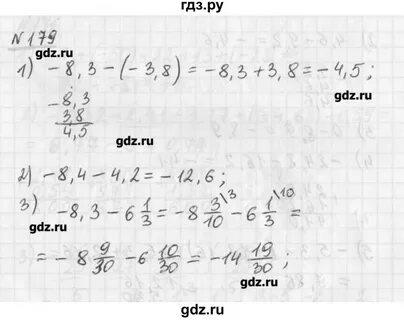 гдз.ру
№179
gdz.ru
gdz.ru
1) -8,3-(-3,8)=-8,3+3,8=-4,5;
-8,3
gdz.ru
3,8
gdz.ru
4,5
gdz.ru
2) -8,4-4,2=-12,6;
3) -8,3-6 1/3=-8 3/10\3-6 1/3\10=
gdz.ru
gdz.ru
=-8 9/30-6 10/30=-14 19/30;
gdz.ru
гдз.ру